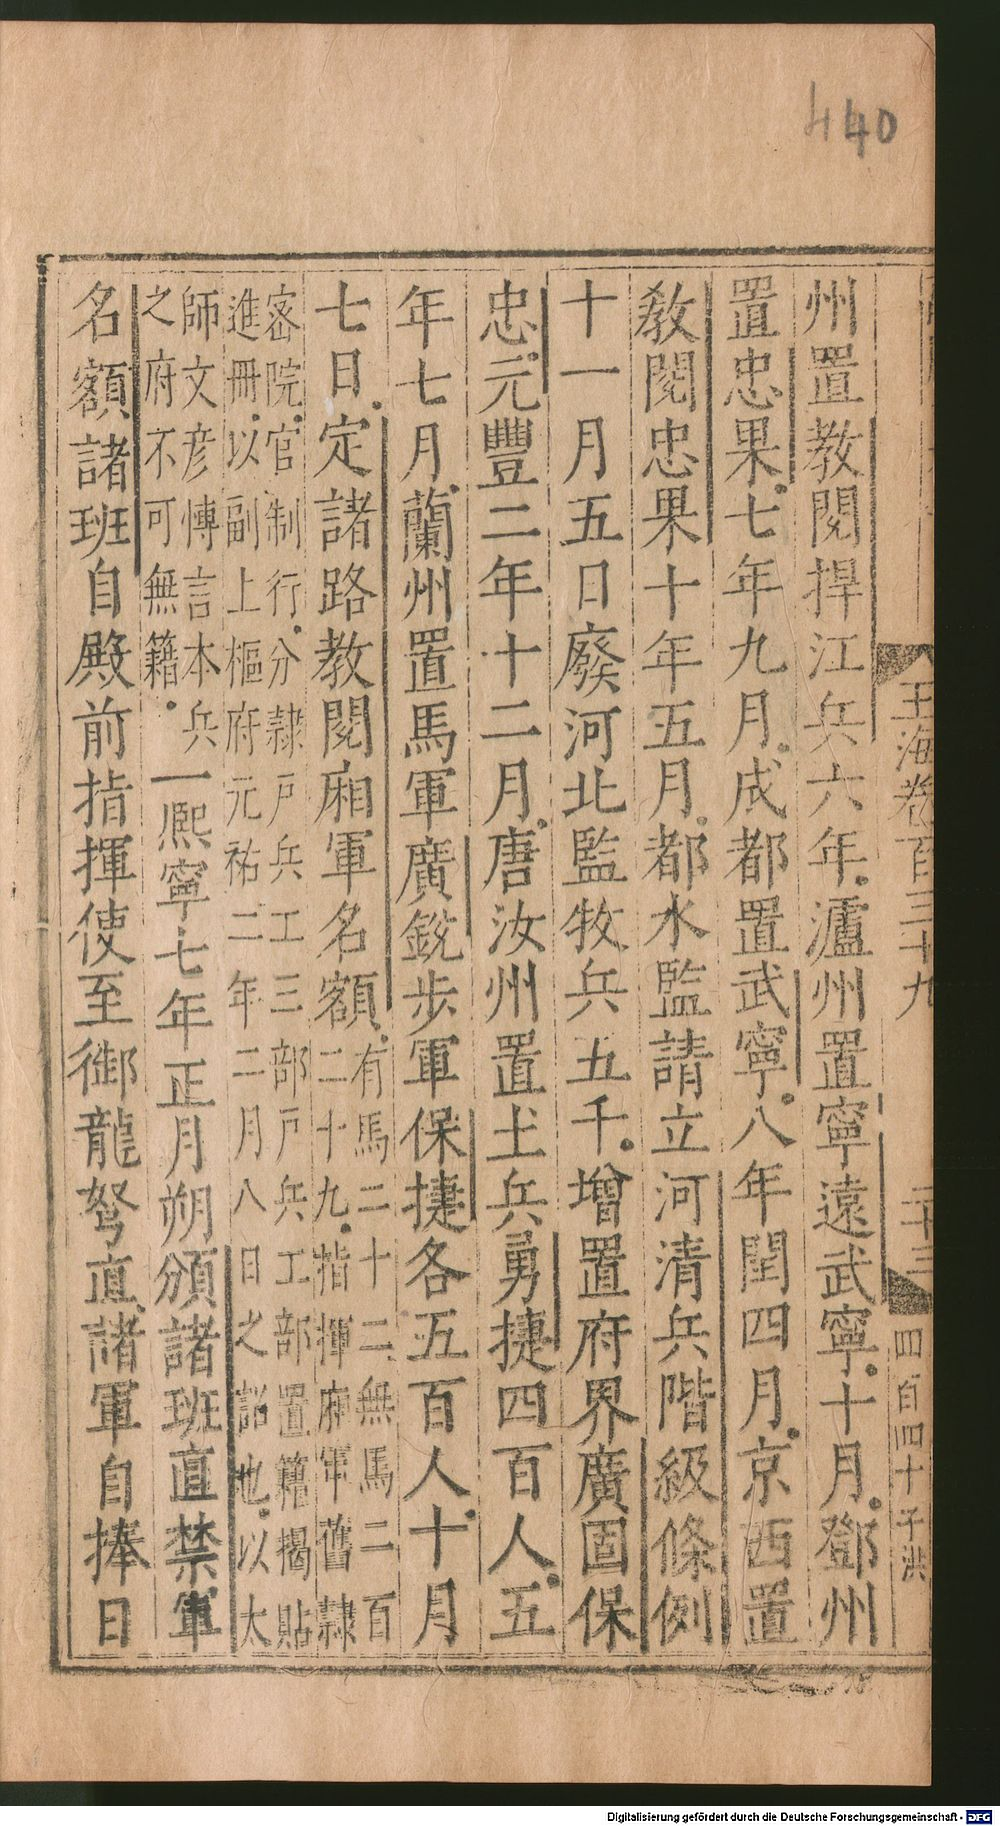 440
玉海卷百三十九 二十三 四百四十子洪
州置教閱捍江兵六年瀘州置寧遠武寧十月鄧州
置忠果七年九月成都置武寧八年閏四月京西置
教閱忠果十年五月都水監請立河清兵階級條例
十一月五日廢河北監牧兵五千增置府界廣固保
忠元豐二年十二月唐汝州置土兵勇捷四百人五
年七月蘭州置馬軍廣銳步軍保捷各五百人十月
七日定諸路教閱廂軍名額
有馬二十二無馬二百
二十九指揮廂軍舊隸
密院官制行分隸戶兵工三部戶兵工部置籍揭貼
進冊以副上樞府元祐二年二月八日之詔也以太
師文彥博言本兵
之府不可無籍
一熙寧七年正月朔頒諸班直禁軍
名額諸班自殿前指揮使至御龍弩直諸軍自捧日
Digitalisierung gefördert durch die Deutsche Forschungsgemeinschaft - DFG